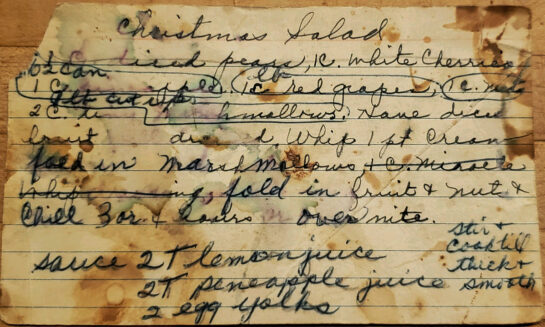 Christmas Salad
diced pears, 1 C. White Cherries
can lb
1 C. red grapes, 1 C. nuts
2 C. hmallows. Have diced
fruit d Whip 1 pt Cream
fold in Marshmallows + C. Miracle
Whip ing, fold in fruit & nuts &
Chill 3 or 4 hours or over nite.
sauce 2 T lemon juice
2 T pineapple juice
2 egg yolks
stir &
cook till
thick &
smooth